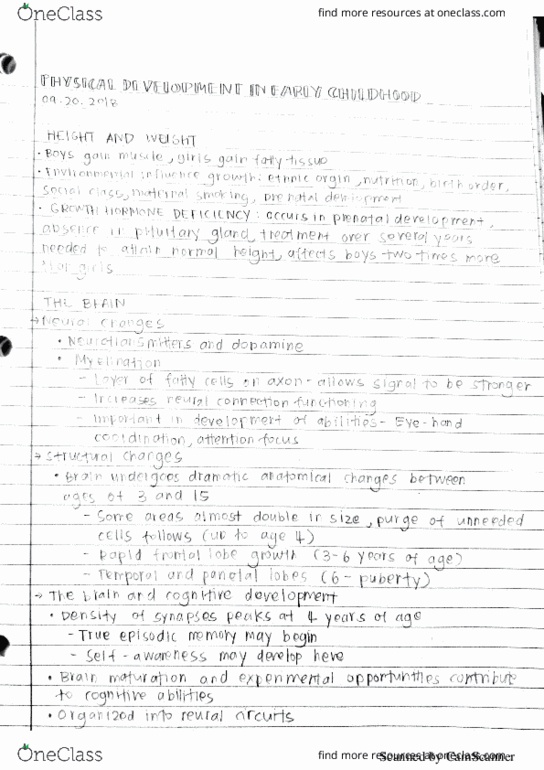 OneClass
find more resources at oneclass.com
PHYSICAL DEVELOPMENT IN EARLY CHILDHOOD
09.20.2018
HEIGHT AND WEIGHT
• Boys gain muscle, girls gain fatty tissue
• Environmental influence growth: ethnic orgin, nutrition, birth order,
social class, maternal smoking, prenatal development
• GROWTH HORMONE DEFICIENCY: occurs in prenatal development,
absence in pituitary gland, treatment over several years
needed to attain normal height, affects boys two times more
than girls
THE BRAIN
→ Neural changes
• Neurotransmitters and dopamine
• Myelination
- Layer of fatty cells on axon - allows signal to be stronger
- Increases neural connection functioning
- Important in development of abilities - Eye-hand
coordination, attention focus
→ Structural changes
• Brain undergoes dramatic anatomical changes between
ages of 3 and 15
- Some areas almost double in size, purge of unneeded
cells follows (up to age 4)
- Rapid frontal lobe growth (3-6 years of age)
- Temporal and parietal lobes (6 - puberty)
→ The brain and cognitive development
• Density of synapses peaks at 4 years of age
- True episodic memory may begin
- Self-awareness may develop here
• Brain maturation and experimental opportunities contribute
to cognitive abilities
• Organized into neural circuits
OneClass
find more resources at oneclass.com
Scanned by CamScanner